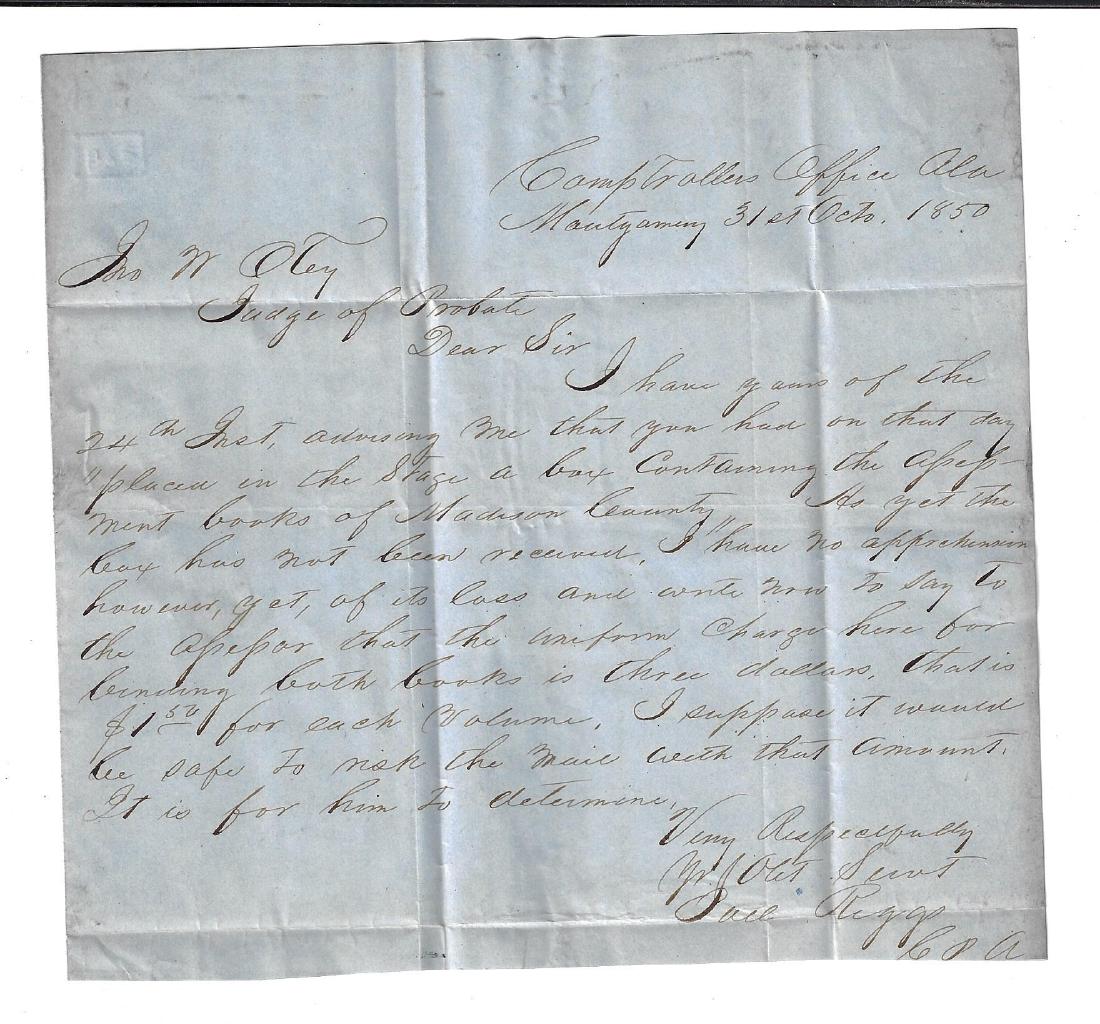 Comptrollers Office Ala
Montgomery 31st Octo. 1850
Jno W Otey
Judge of Probate
Dear Sir
I have yours of the
24th Inst, advising me that you had on that day
"placed in the Stage a box Containing the assess-
ment books of Madison County" As yet the
box has not been received, I have no apprehension
however, yet, of its loss and write now to say to
the assessor that the uniform Charge here for
binding both books is three dollars, that is
$1 50 for each Volume, I suppose it would
be safe to risk the mail with that amount.
It is for him to determine,
Very Respectfully
Yr Obt Servt
Joel Riggs
C P A